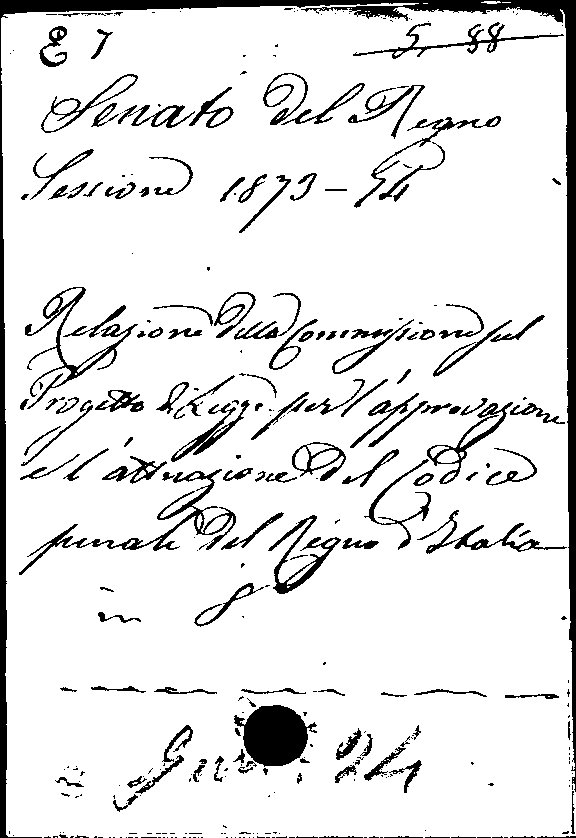 E 7 5. 88
Senato del Regno
Sessione 1873-74
Relazione della Commissione sul
Progetto di Legge per l'approvazione
e l'attuazione del Codice
penale del Regno d'Italia
in 8°
24